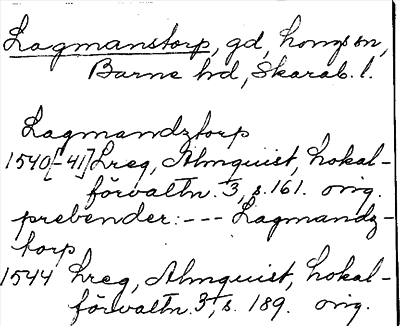 Lagmanstorp, gd, Longs sn,
Barne hd, Skarab. l.
Lagmandztorp
1540[-41] Lreg, Almquist, Lokal-
förvaltn. 3, s. 161. orig.
prebender: --- Lagmandz-
torp
1544 Lreg, Almquist, Lokal-
förvaltn. 3, s. 189. orig.